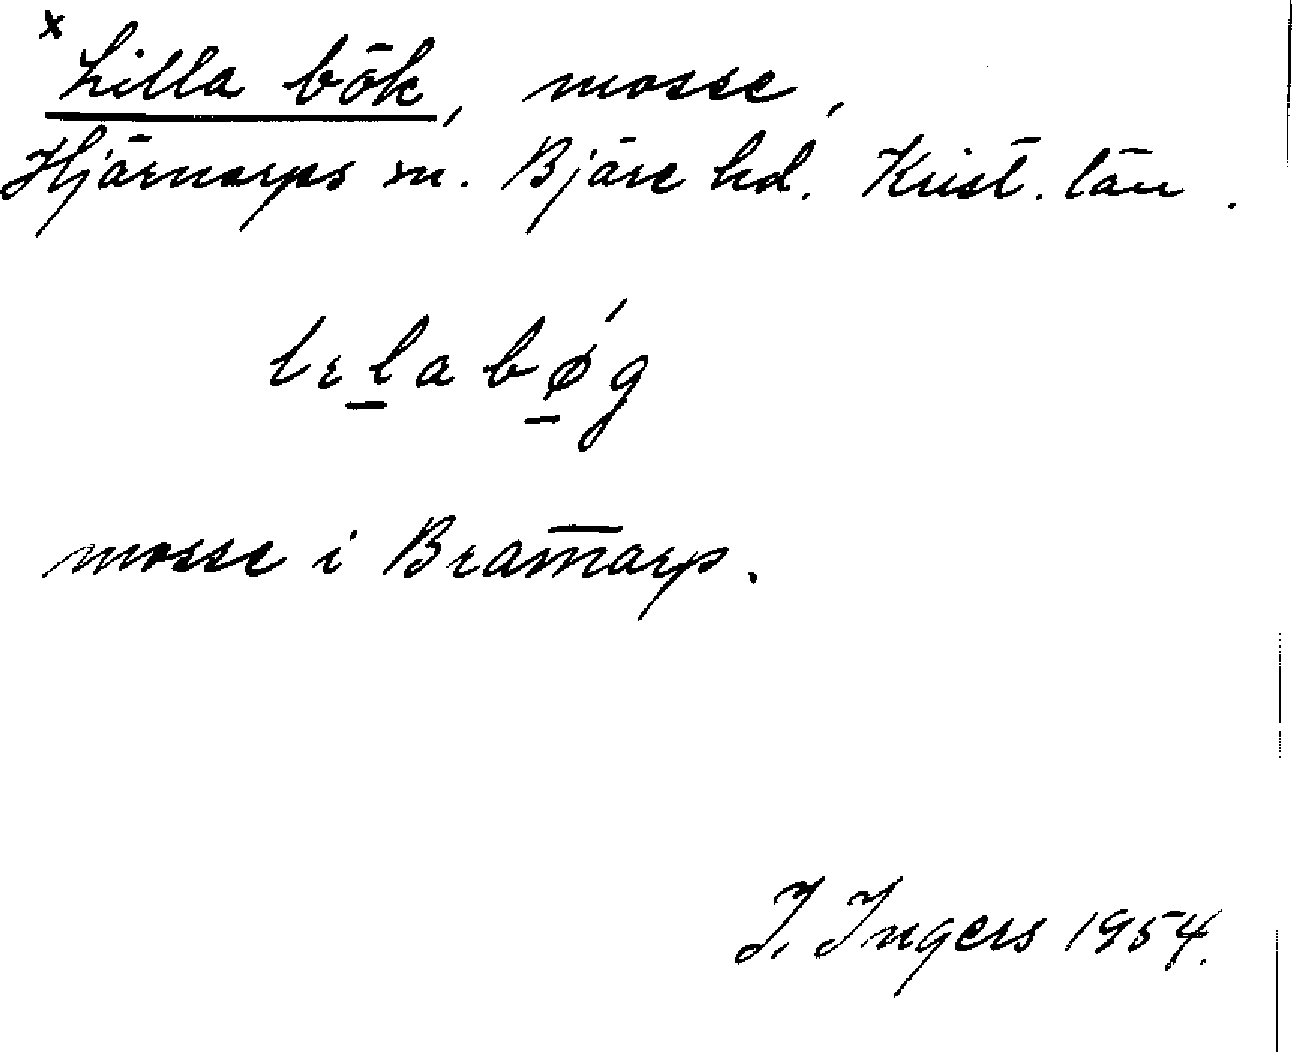 x
Lilla bök, mosse,
Hjärnarps sn. Bjäre hd. Krist. län.
lɩl̲a bǿ̲g
mosse i Bram̅arp.
I. Ingers 1954.